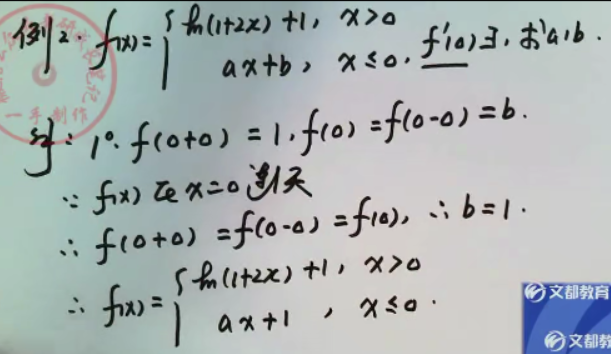 例2. f(x)= { ln(1+2x)+1, x>0
ax+b, x≤0. f'(0)∃, 求a,b.
解: 1°. f(0+0)=1, f(0)=f(0-0)=b.
∵ f(x)在x=0连续
∴ f(0+0)=f(0-0)=f(0), ∴ b=1.
∴ f(x)= { ln(1+2x)+1, x>0
ax+1, x≤0.
一手制作
文都教育
文都教